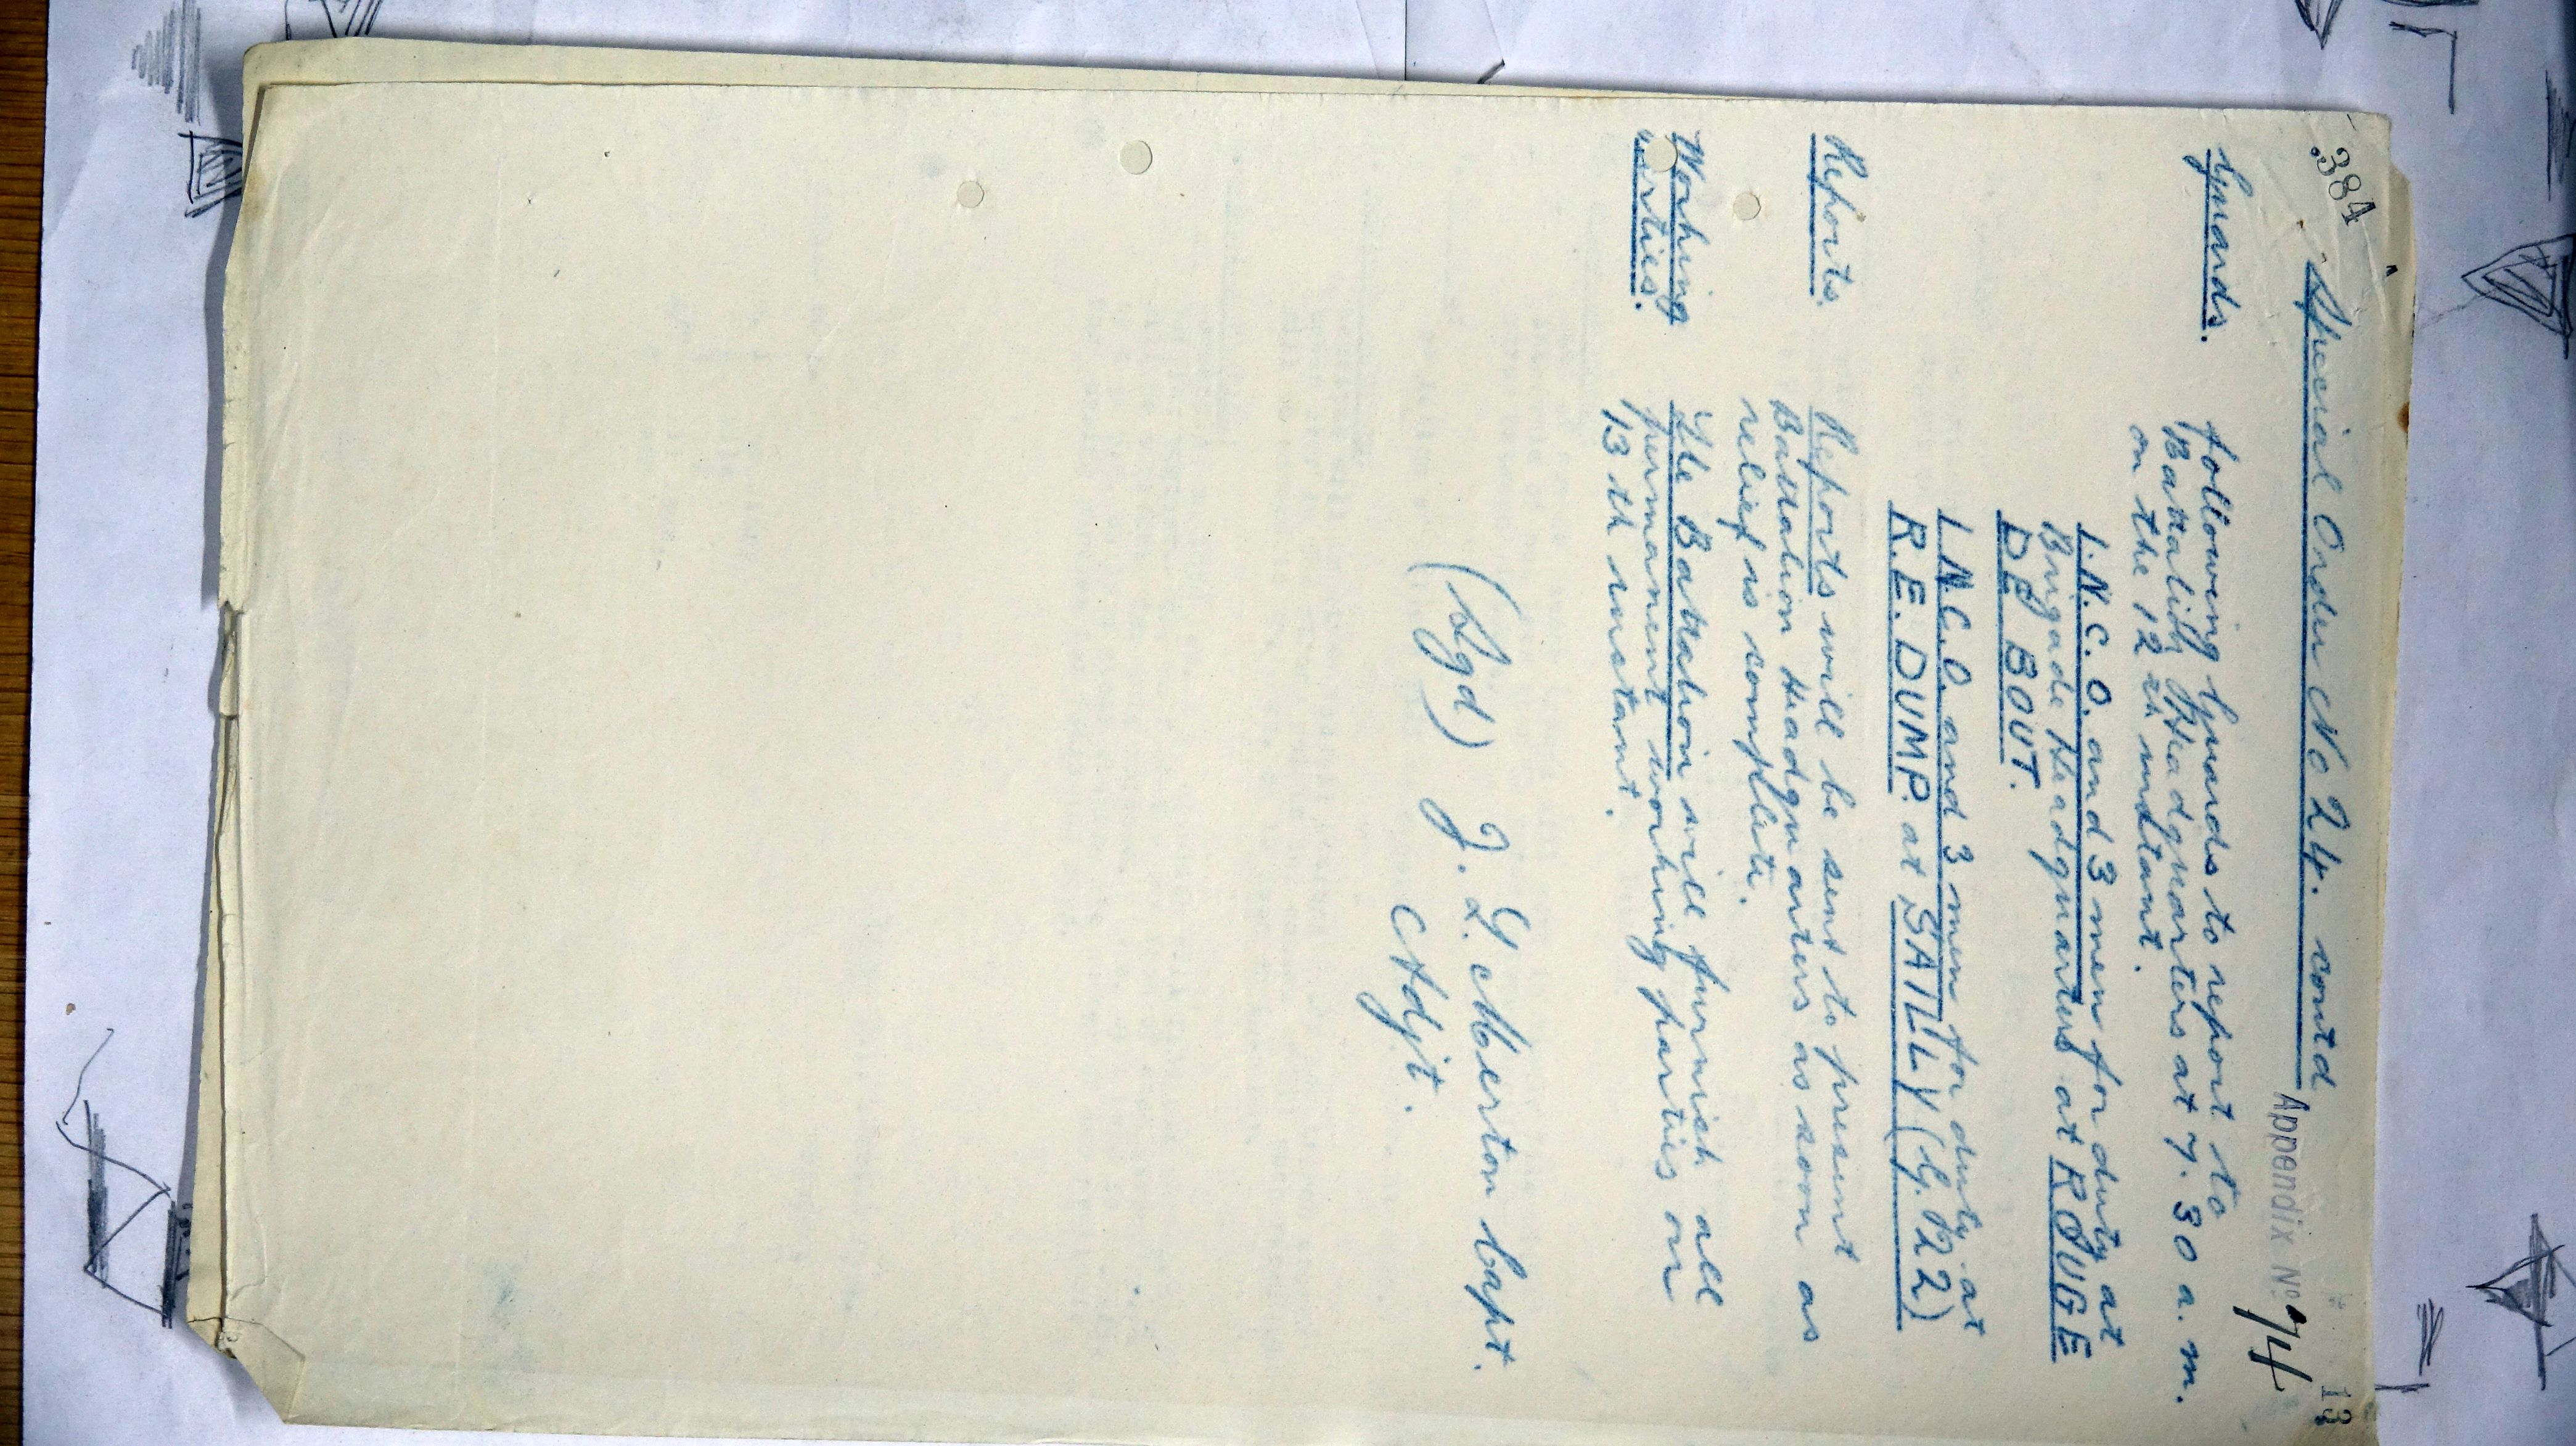 384
13
Special Order No 24. contd
Appendix No. 74
Guards.
following Guards to report to
Battalion Headquarters at 7.30 a.m.
on the 12th instant.
1. N.C.O. and 3 men for duty at
Brigade Headquarters at ROUGE
DE BOUT.
1. N.C.O. and 3 men for duty at
R.E. DUMP. at SAILLY (G.22)
Reports.
Reports will be sent to present
Battalion Headquarters as soon as
relief is complete.
Working
parties.
The Battalion will furnish all
permanent working parties on
13th instant.
(Sgd) J. L. Merton Capt.
Adjt.